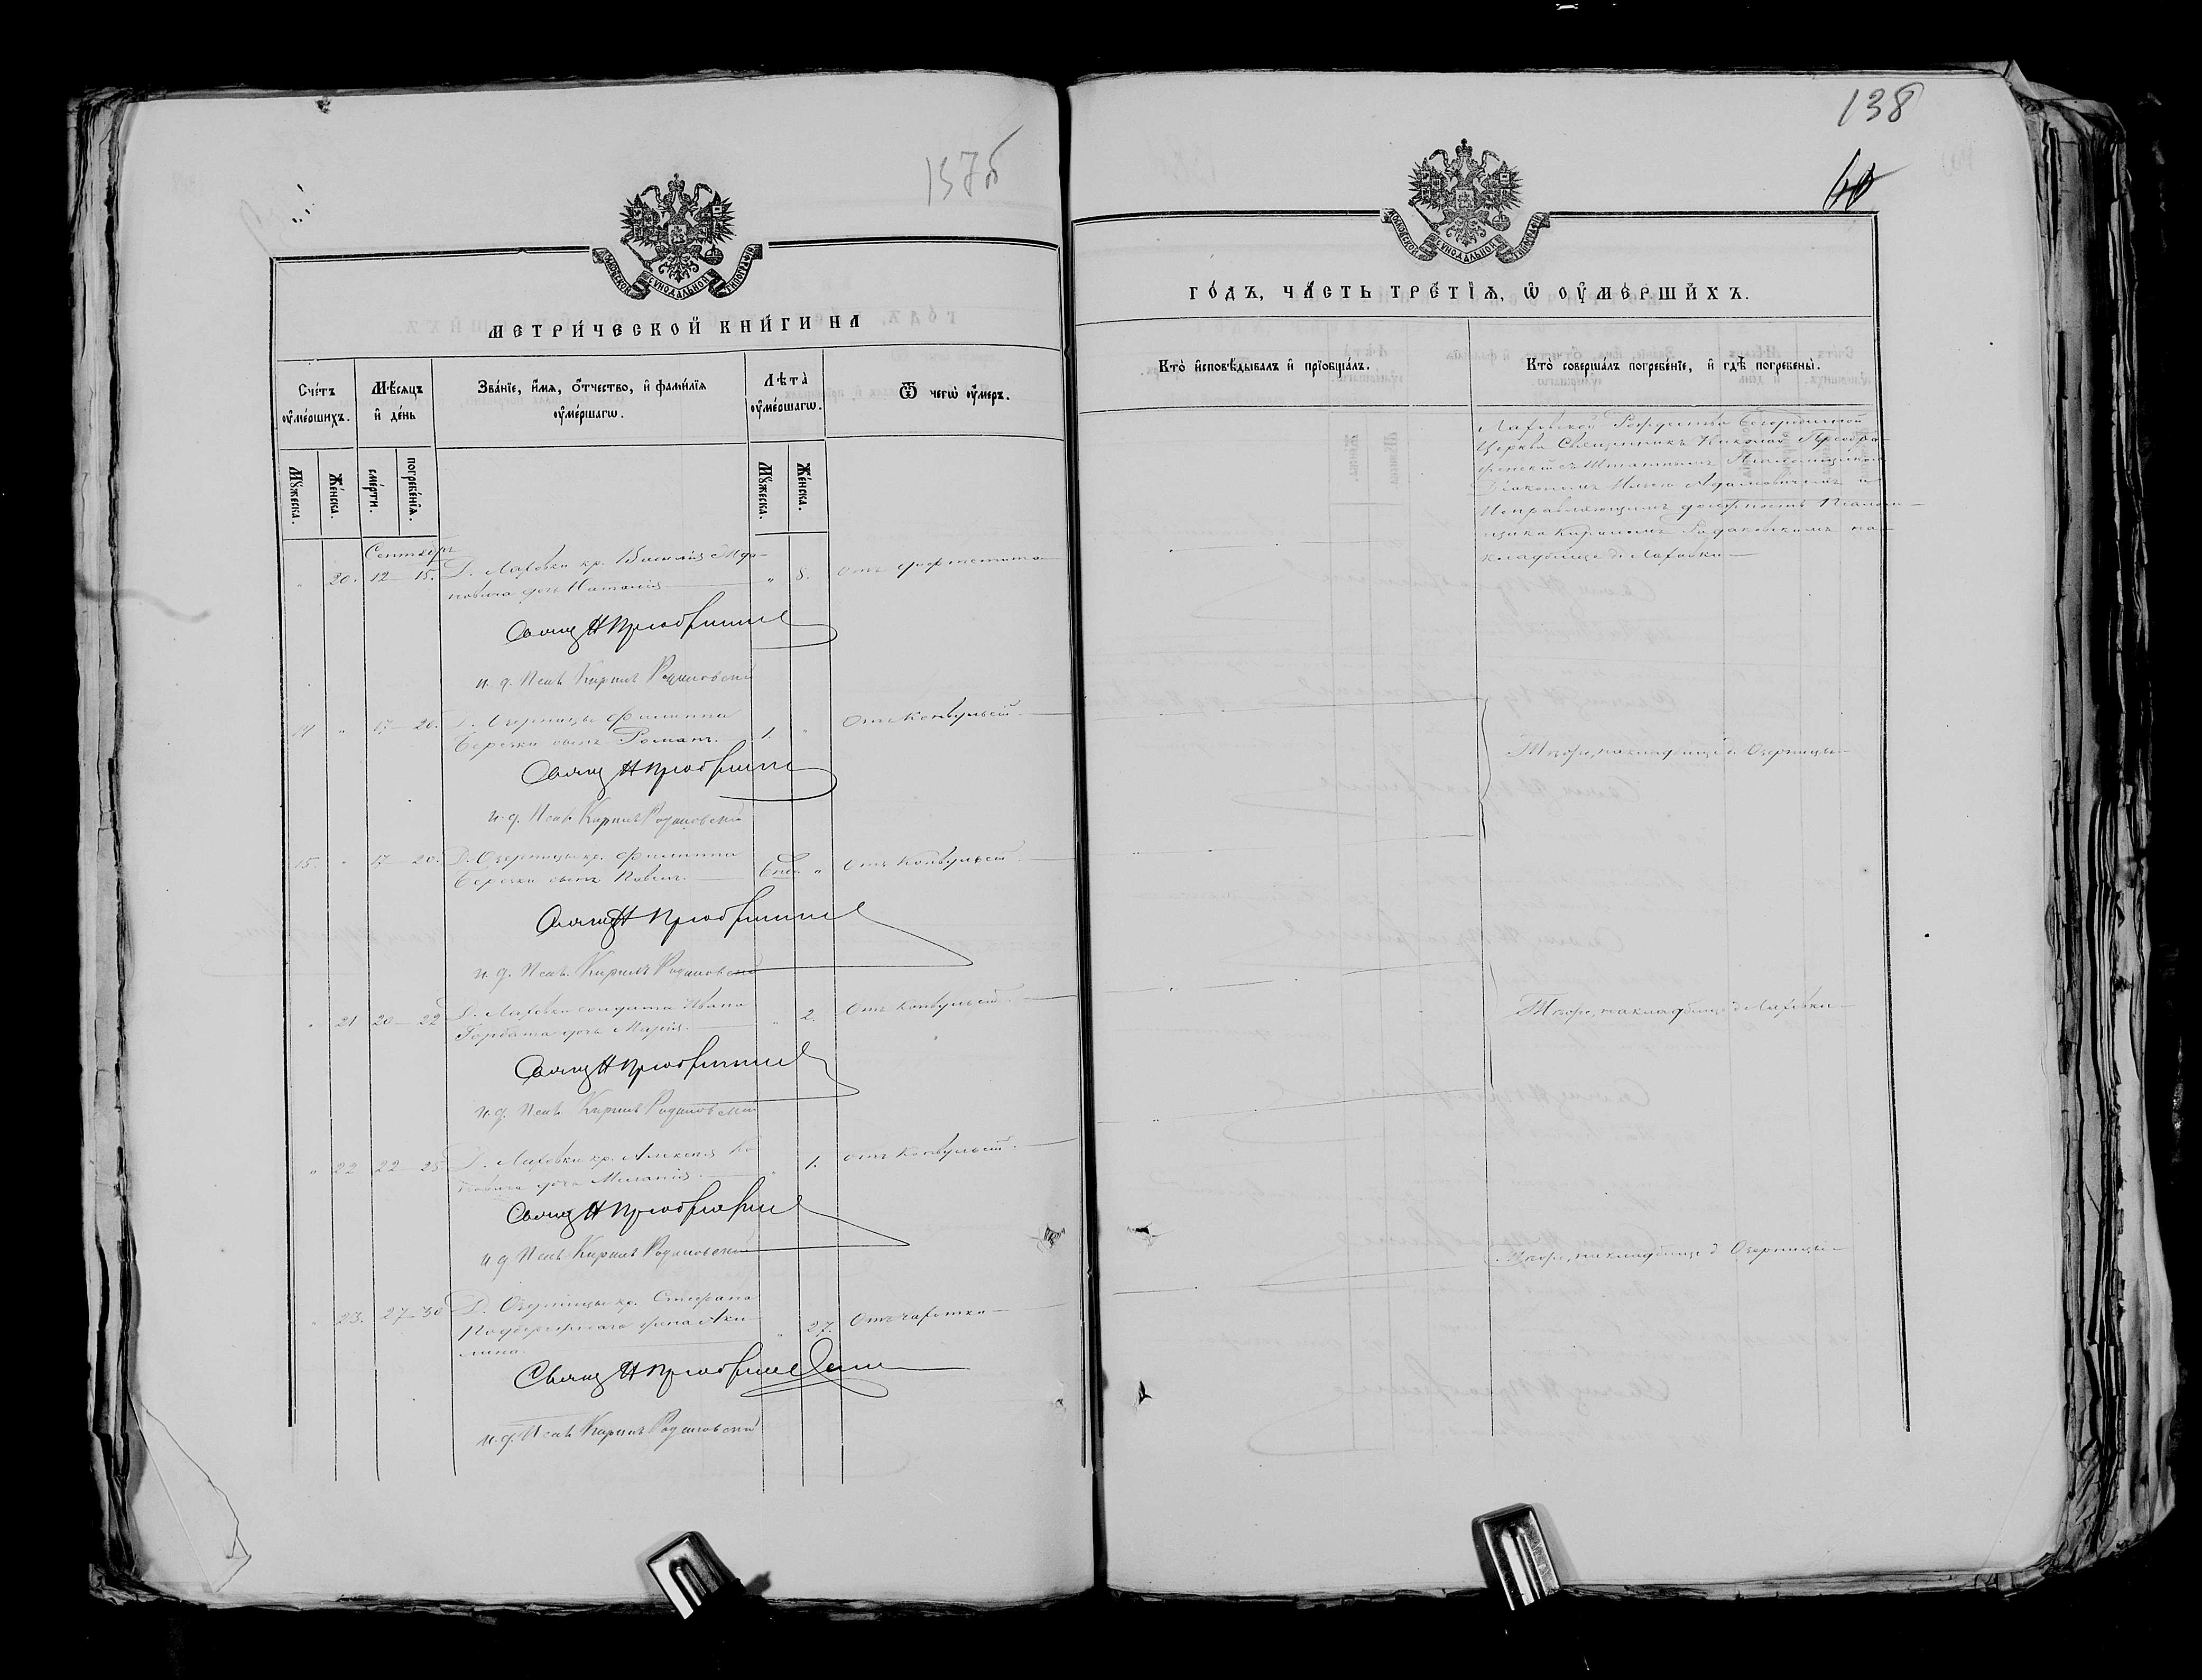 137б
МОСКОВСКОЙ СѴНОДАЛЬНОЙ ТИПОГРАФІИ
МЕТРИ́ЧЕСКОЙ КНИ́ГИ НА
Сче́тъ ᲂу҆ме́ршихъ.
Мѣ́сяцъ и҆ де́нь
Зва́нїе, и҆́мѧ, ѻ҆́тчество, и҆ фамⷧ҇їѧ ᲂу҆ме́ршагѡ.
Лѣ́та ᲂу҆ме́ршагѡ.
Ѿ чегѡ̀ ᲂу҆́меръ.
Мꙋ́жеска.
Же́нска.
сме́рти.
погребе́нїѧ.
Мꙋ́жеска.
Же́нска.
Сентябрь
" 20. 12 — 15. Д. Лаховки кр. Василія
дочь Наталія " 8.
Свящ Н Преображенскій
и. д. Псал. Кирилъ Родаковскій
14 " 17 — 20. Д. Озерницы Филиппа
Березки сынъ Романъ. 1. " Отъ Конвульсій
Свящ Н Преображенскій
и. д. Псал. Кирилъ Родаковскій
15. " 17 — 20. Д. Озерницы кр. Филиппа
Березки сынъ Павелъ. " Отъ Конвульсій
Свящ Н Преображенскій
и. д. Псал. Кирилъ Родаковскій
" 21 20 — 22 Д. Лаховки солдата Ивана
Горбата дочь Марія. " 2. Отъ Конвульсій
Свящ Н Преображенскій
и. д. Псал. Кирилъ Родаковскій
" 22 22 — 25 Д. Лаховки кр. Алексія
дочь Меланія. " 1. Отъ Конвульсій
Свящ Н Преображенскій
и д Псал. Кирилъ Родаковскій
" 23. 27 — 30 Д. Озерницы кр. Стефана
жена Аки-
лина. " 27. Отъ чахотки
Свящ Н Преображенскій
и. д. Псал. Кирилъ Родаковскій
138
40
МОСКОВСКОЙ СѴНОДАЛЬНОЙ ТИПОГРАФІИ
ГО́ДЪ, ЧА́СТЬ ТРЕ́ТЇѦ, Ѡ҆ ОУ҆МЕ́РШИХЪ.
Кто̀ и҆сповѣ́дывалъ и҆ прїѻбща́лъ.
Кто̀ соверша́лъ погребе́нїе, и҆ гдѣ̀ погребены̀.
Лаховской Рождество Богородичной
Церкви Священникъ Николай Преобра-
женскій съ Штатнымъ
Діакономъ Ильею Адамовичемъ и
Исправляющимъ должность Псалом-
щика Кириломъ Родаковскимъ на
кладбище д. Лаховки
Тѣже, на кладбище д. Озерницы
Тѣже, на кладбище д. Лаховки
Тѣже, на кладбище д. Озерницы